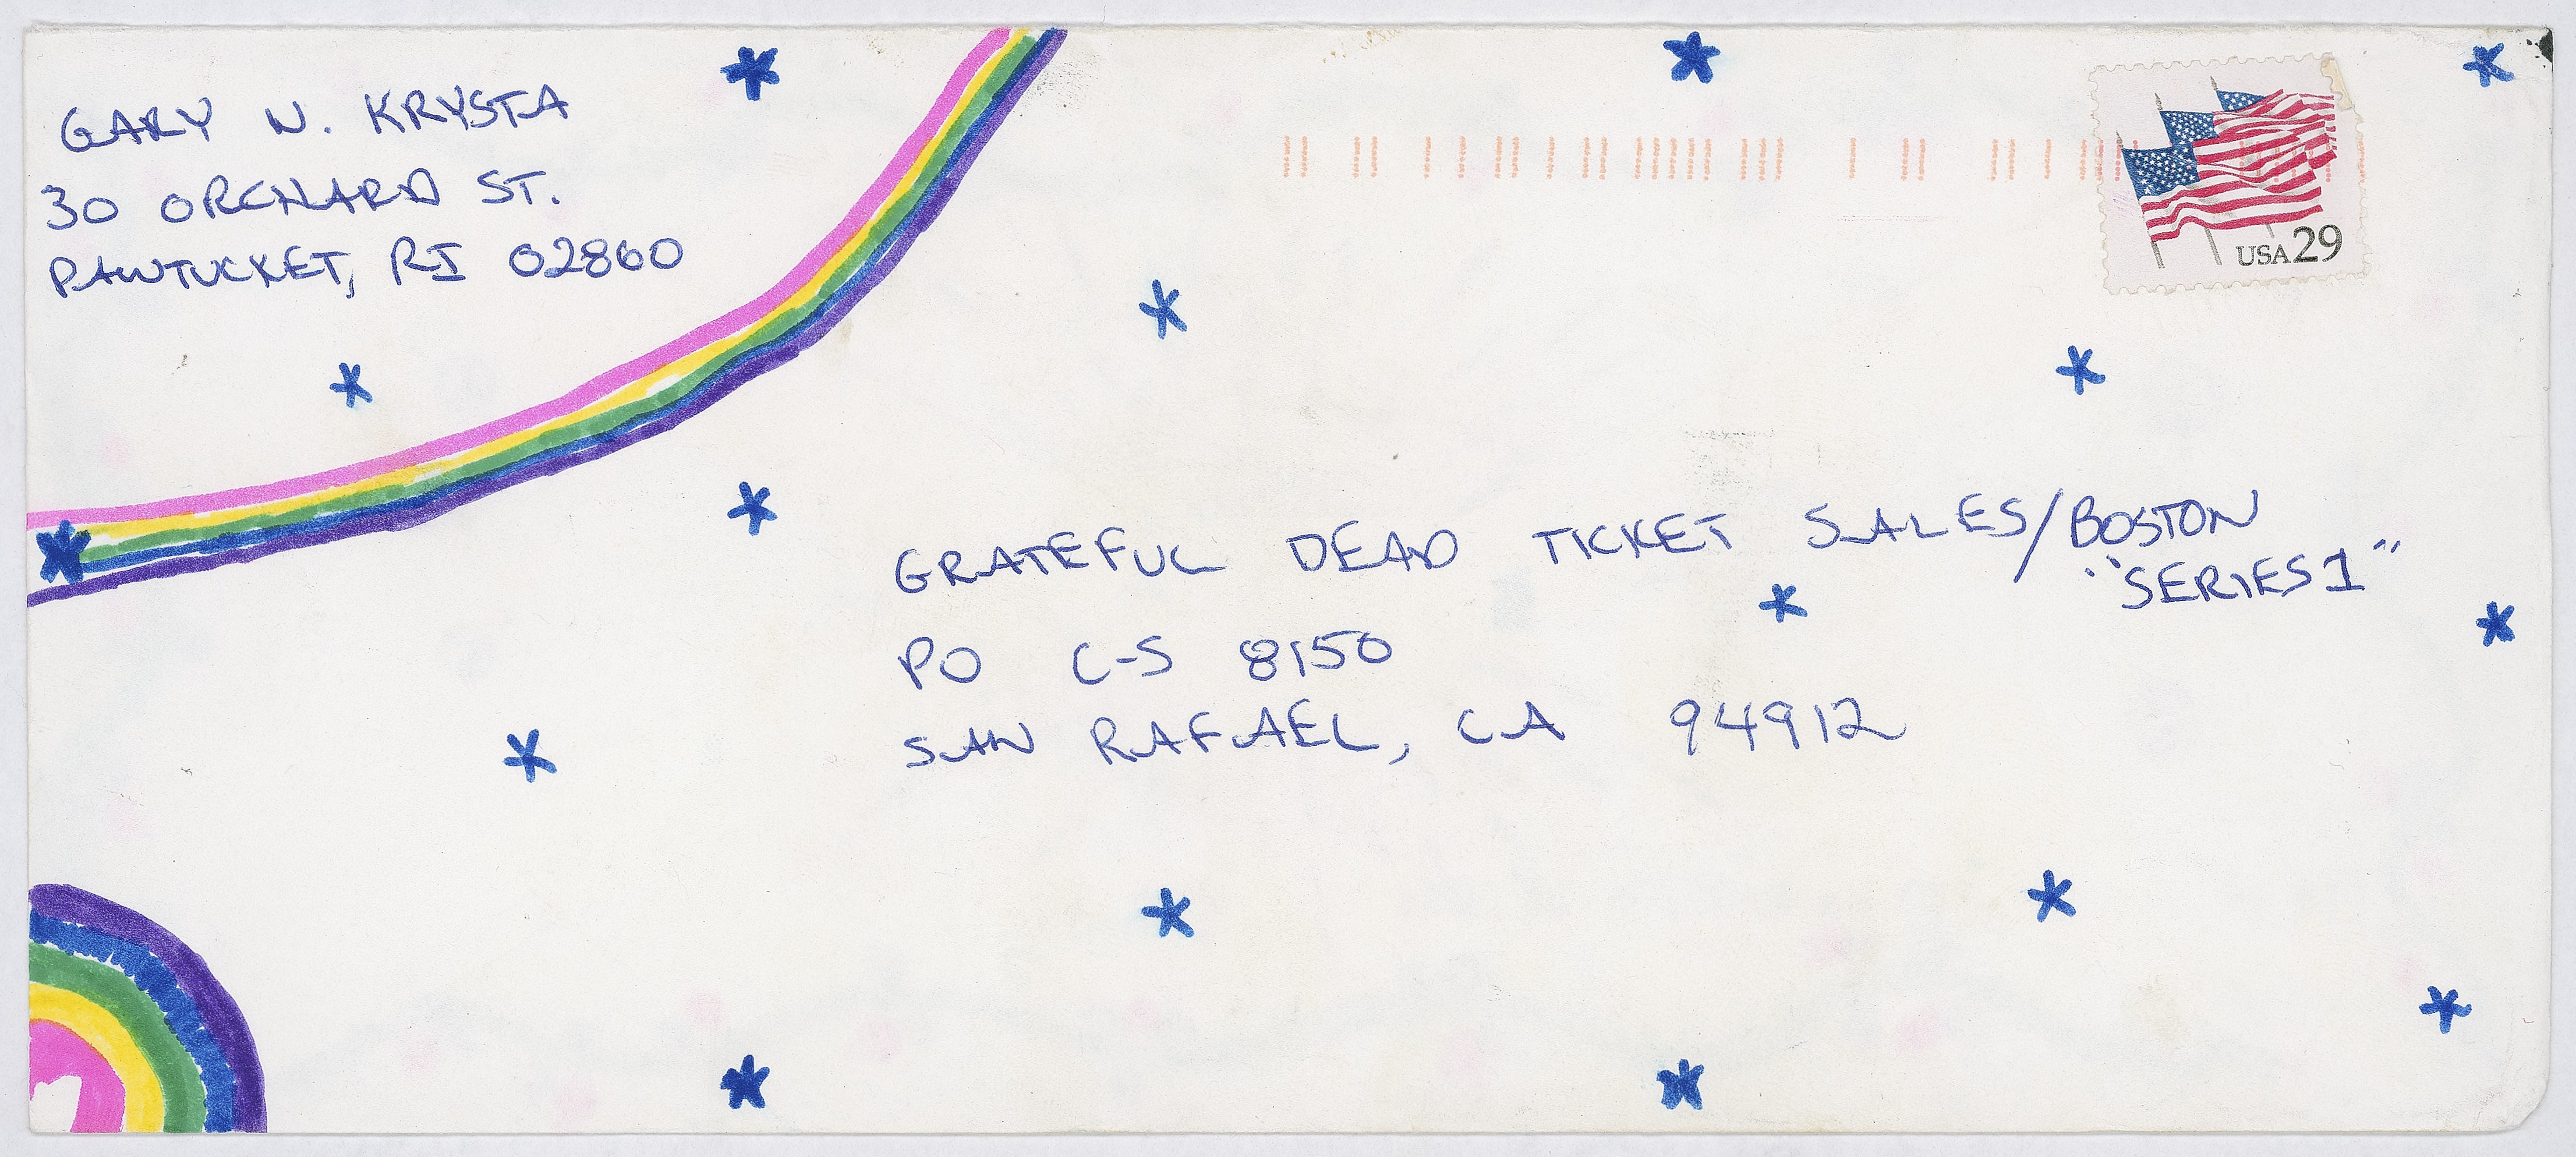 GARY N. KRYSTA
30 ORCHARD ST.
PAWTUCKET, RI 02860
USA 29
GRATEFUL DEAD TICKET SALES/BOSTON
"SERIES 1"
PO C-S 8150
SAN RAFAEL, CA 94912